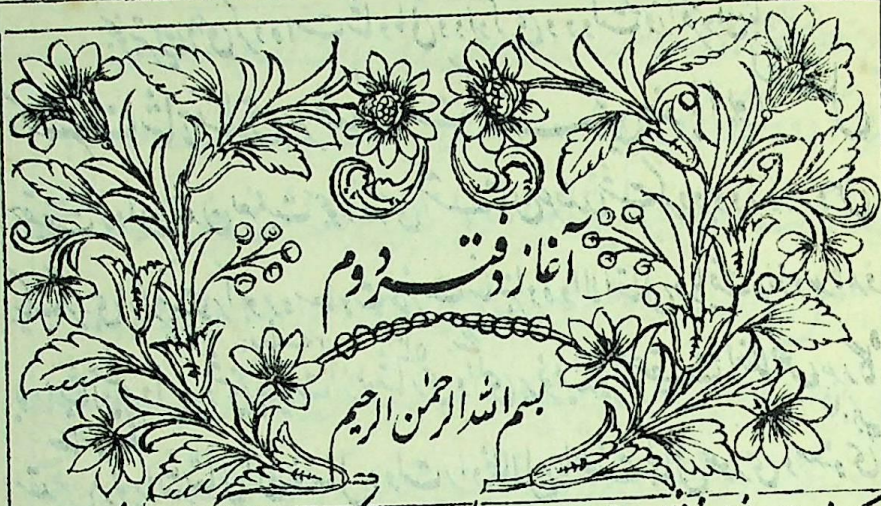 آغاز دفتر دوم
بسم الله الرحمن الرحیم